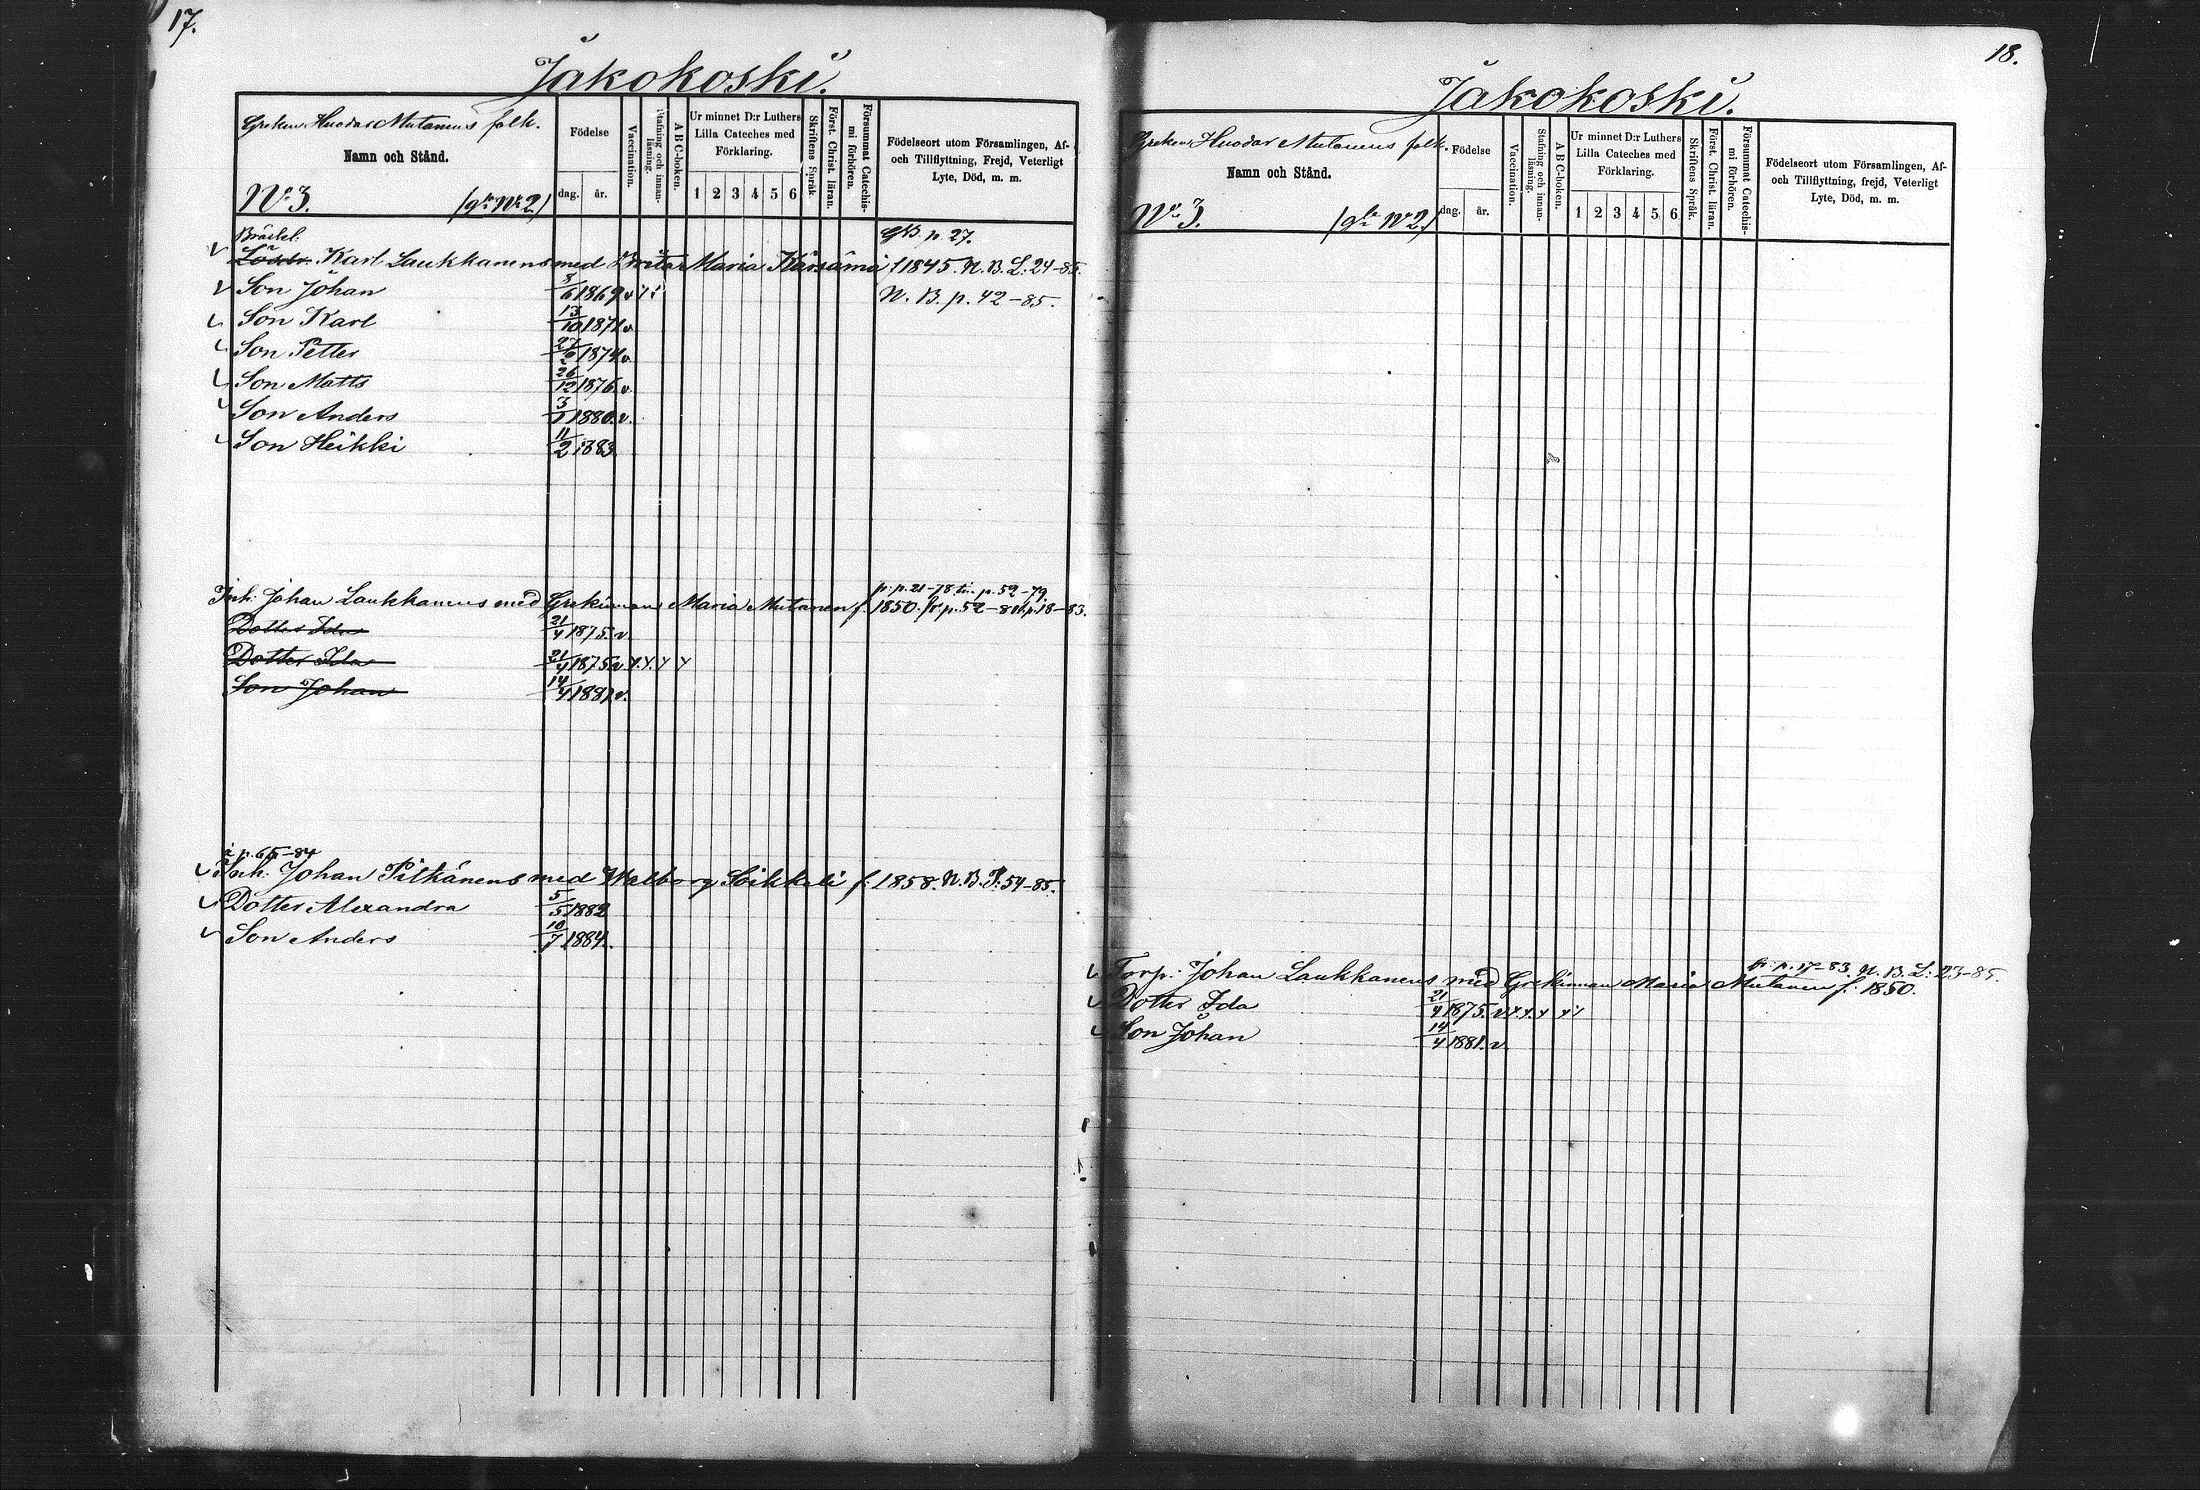 17.
Jakokoski.
Greken Huodar Mutanens folk.
Namn och Stånd.
No 3. (gla No 2)
Födelse
dag. år.
Vaccination.
Stafning och innan-
läsning.
A B C-boken.
Ur minnet D:r Luthers
Lilla Cateches med
Förklaring.
1 2 3 4 5 6
Skriftens Språk.
Först. Christ. läran.
Försummat Catechis-
mi förhören.
Födelseort utom Församlingen, Af-
och Tillflyttning, Frejd, Veterligt
Lyte, Död, m. m.
GB. p. 27.
Karl Laukkanens med Brita Maria Kärsämä f. 1845. N. B. L: 24-85.
Son Johan 8/6 1869 v N. B. p. 42-85.
Son Karl 13/10 1871 v.
Son Petter 27/6 1874 v.
Son Matts 26/12 1876 v.
Son Anders 3/1 1880. v.
Son Heikki 11/2 1883
p. p. 21-78 p. 52-79.
Inh: Johan Laukkanens med Grekinnan Maria Mutanen f. 1850. fr. p. 52-81. p. 18-83.
Dotter Ida 21/4 1875. v.
Dotter Ida 21/4 1875. v
Son Johan 14/4 1881 v.
p. 65-84
Inh: Johan Pitkänens med Walborg Soikkeli f. 1858. N. B. P: 54-85.
Dotter Alexandra 5/5 1882
Son Anders 10/7 1884.
18.
Jakokoski.
Greken Huodar Mutanens folk.
Namn och Stånd.
No 3. (gla No 2)
Födelse
dag. år.
Vaccination.
Stafning och innan-
läsning.
A B C-boken.
Ur minnet D:r Luthers
Lilla Cateches med
Förklaring.
1 2 3 4 5 6
Skriftens Språk.
Först. Christ. läran.
Försummat Catechis-
mi förhören.
Födelseort utom Församlingen, Af-
och Tillflyttning, frejd, Veterligt
Lyte, Död, m. m.
fr. p. 17-83. N. B. L: 23-85.
Torp: Johan Laukkanens med Grekinnan Maria Mutanen f. 1850.
Dotter Ida 21/4 1875. v
Son Johan 14/4 1881. v.